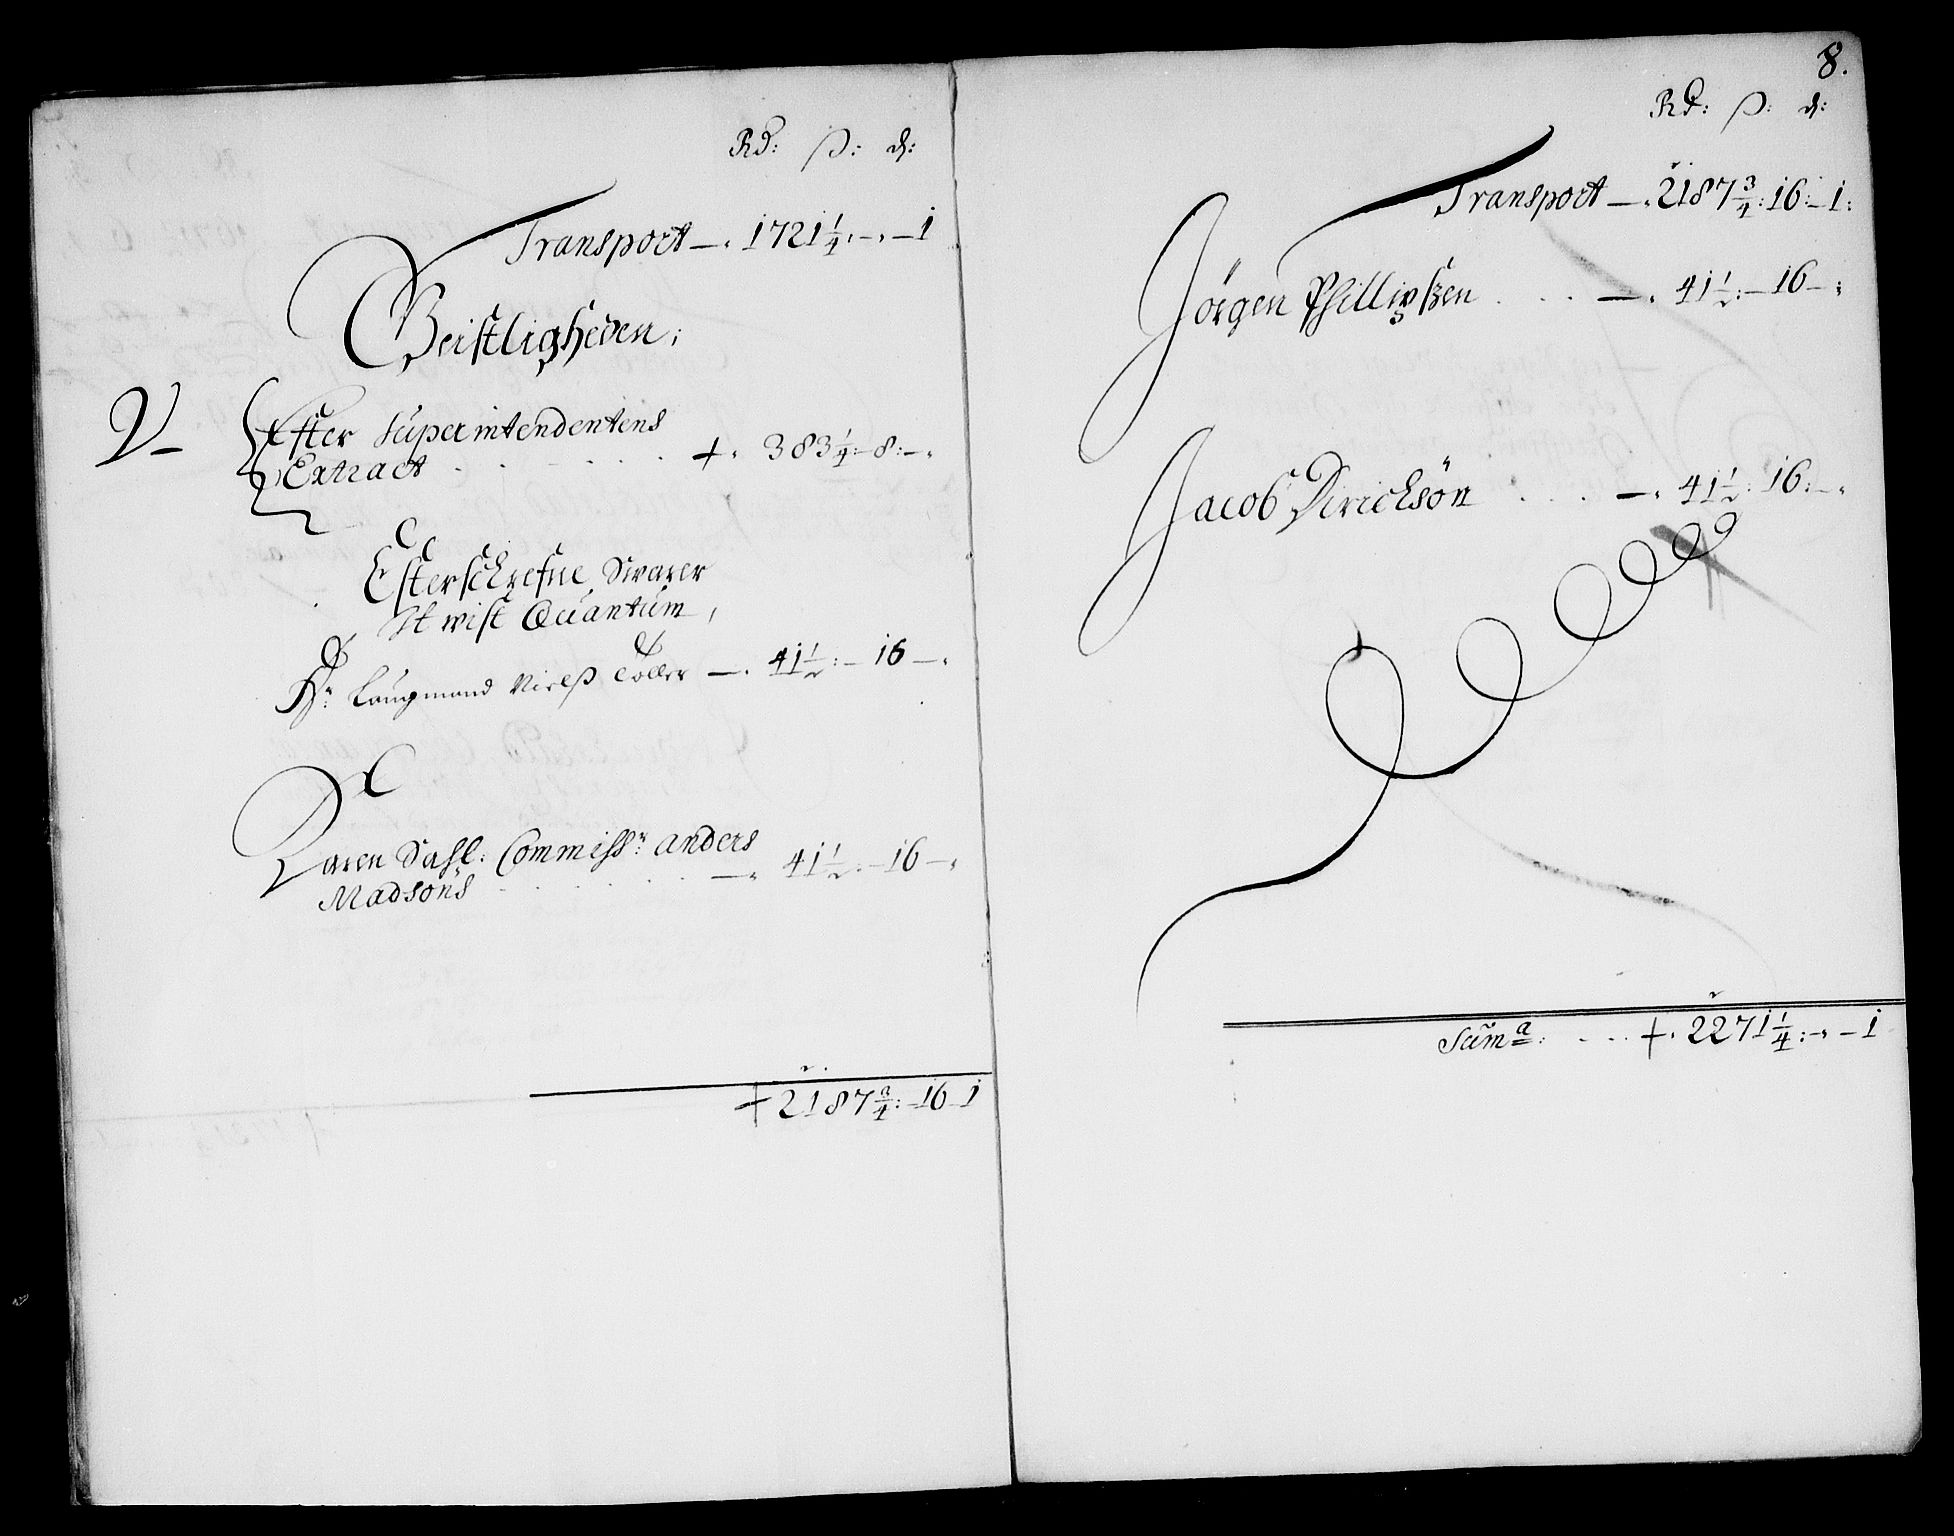 Rd: ß: d:
Transport —. 1721 1/4. -. — 1
Geistligheden;
V- Efter Superintendentens
Extract . . . . . . +. 383 1/4:- 8:-.
Efterschrefne Swarer
It wist Quantum,
Hr: Laugmand Nielß Toller —. 41 1/2:- 16 —.
Karen Sahl: Commissr: Anders
Madsöns . . . . . —. 41 1/2:- 16 —.
+ 2187 3/4:- 16 - 1
8.
Rd: ß: d:
Transport —. 2187 3/4: 16:- 1:
Jörgen Phillipßen . . . —. 41 1/2:- 16 -:
Jacob Dirichsön . . . —. 41 1/2: 16:-.
Suma: . . . +. 2271 1/4:-. - 1